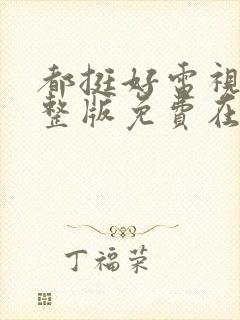 都挺好電視
整版免費在
丁福荣